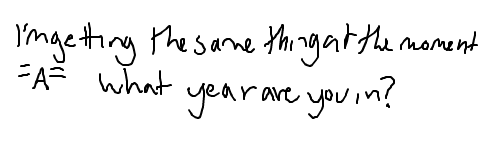 I'm getting the same thing at the moment
=A= What year are you in?